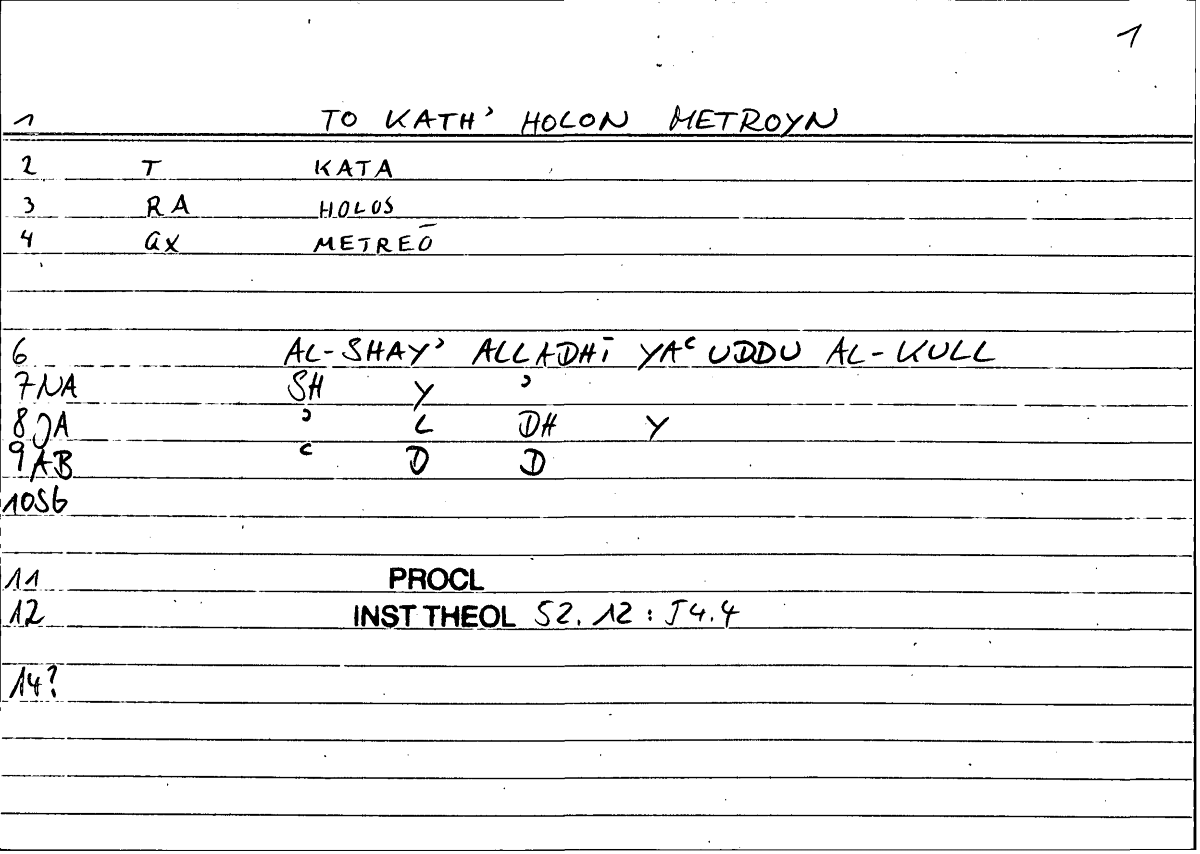 1
1 TO KATH' HOLON METROYN
2 T KATA
3 RA HOLOS
4 GX METREŌ
6 AL-SHAY' ALLADHĪ YAʿUDDU AL-KULL
7 NA SH Y '
8 JA ' L DH Y
9 AB ʿ D D
10 SG
11 PROCL
12 INST THEOL 52.12 : 54.4
14?